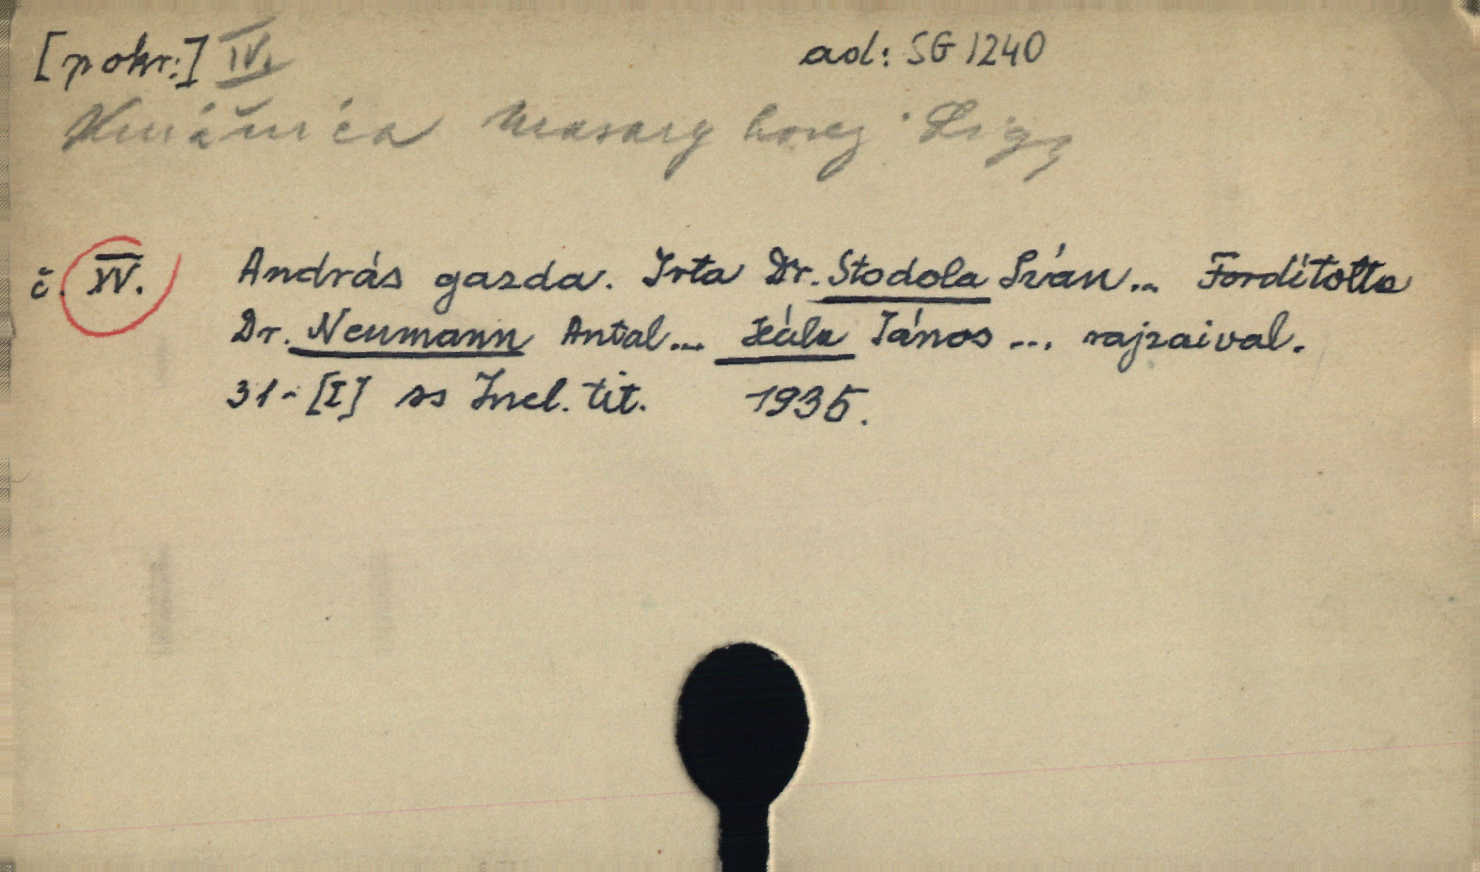 [pokr:] IV. ad: SG 1240
Knižnica Masaryk Ligy
č. XV. András gazda. Irta Dr. Stodola Iván... Fordította
Dr. Neumann Antal... Hála János ... rajzaival.
31-[I] ss Incl. tit. 1935.